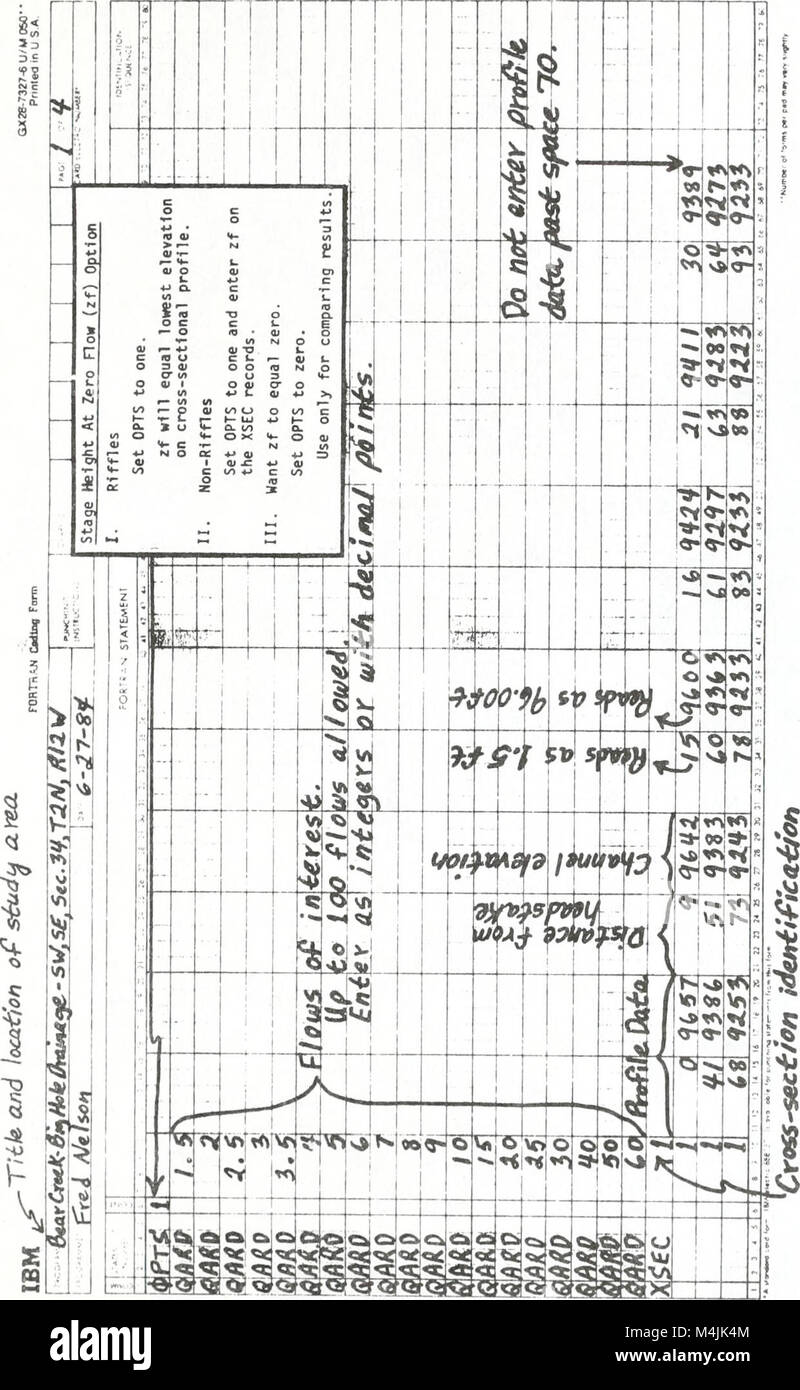 Title and location of study area
IBM
FORTRAN Coding Form
GX28-7327-6 U/M 050**
Printed in U.S.A.
Bear Creek-Big Hole Drainage - SW, SE, Sec. 34, T2N, R12W
Fred Nelson
6-27-84
PUNCHING INSTRUCTIONS
PAGE 1 OF 4
CARD ELECTRO NUMBER*
FORTRAN STATEMENT
IDENTIFICATION SEQUENCE
Stage Height At Zero Flow (zf) Option
I. Riffles
Set OPTS to one.
zf will equal lowest elevation
on cross-sectional profile.
II. Non-Riffles
Set OPTS to one and enter zf on
the XSEC records.
III. Want zf to equal zero.
Set OPTS to zero.
Use only for comparing results.
OPTS 1
QARD 1.5
QARD 2
QARD 2.5
QARD 3
QARD 3.5
QARD 4
QARD 5
QARD 6
QARD 7
QARD 8
QARD 9
QARD 10
QARD 15
QARD 20
QARD 25
QARD 30
QARD 40
QARD 50
QARD 60
XSEC 1
Flows of interest.
Up to 100 flows allowed.
Enter as integers or with decimal points.
Do not enter profile
data past space 70.
Profile Data
Distance from
headstake
Channel elevation
Reads as 1.5 ft
Reads as 96.00 ft
1 0 9657 9 9642 15 9600 16 9424 21 9411 30 9389
1 41 9386 51 9383 60 9363 61 9297 63 9283 64 9273
1 68 9253 73 9243 78 9233 83 9233 88 9223 93 9233
Cross-section identification
**Number of forms per pad may vary slightly
alamy
Image ID: M4JK4M
www.alamy.com